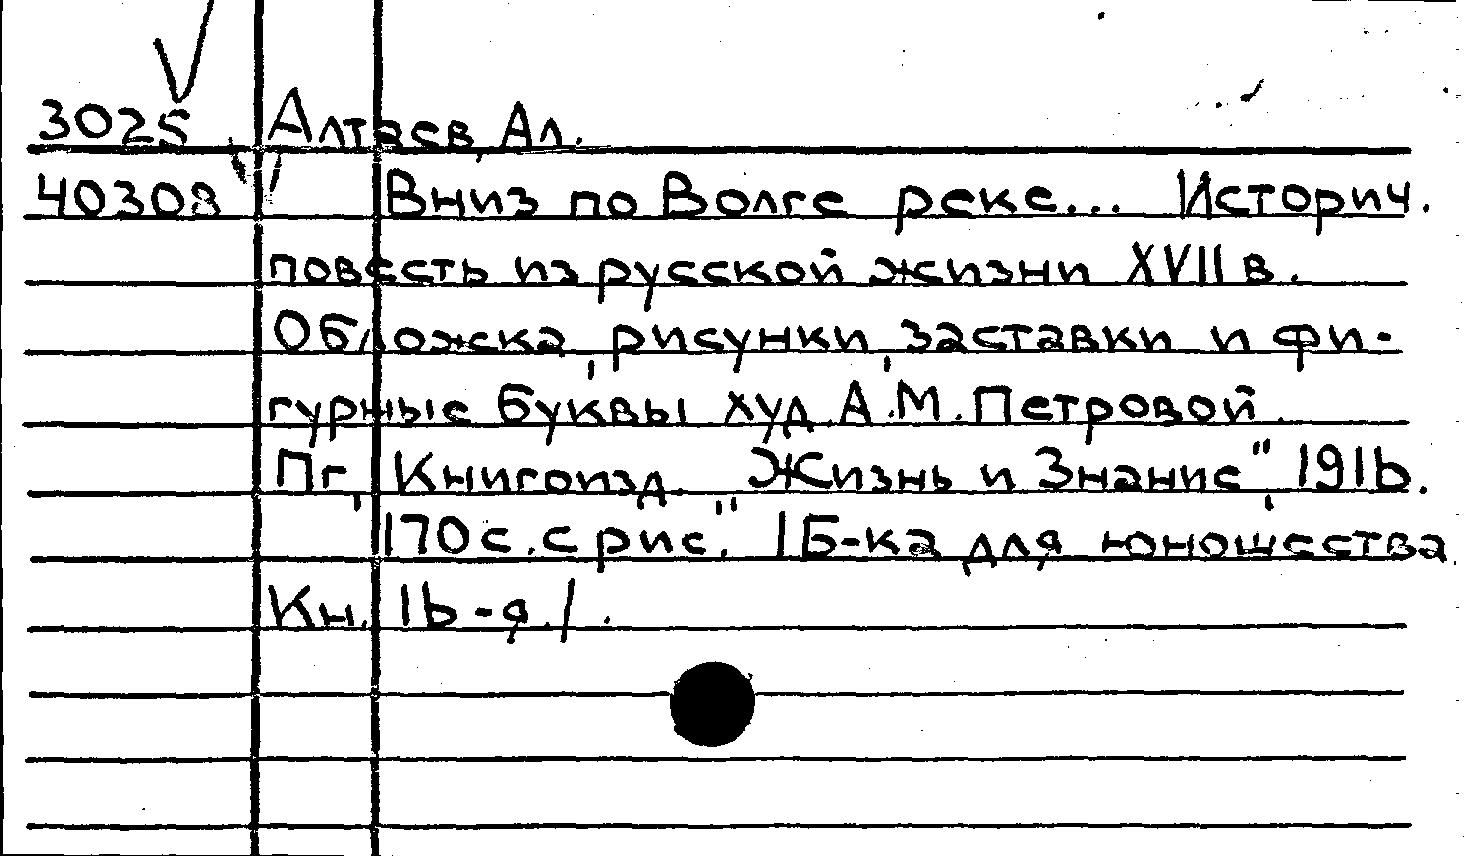 3025 Алтаев, Ал.
40308 Вниз по Волге реке... Историч.
повесть из русской жизни XVII в.
Обложка, рисунки, заставки и фи-
гурные буквы худ. А.М. Петровой.
Пг, Книгоизд. "Жизнь и Знание", 1916.
170 с. с рис. /Б-ка для юношества
Кн. 16-я./.